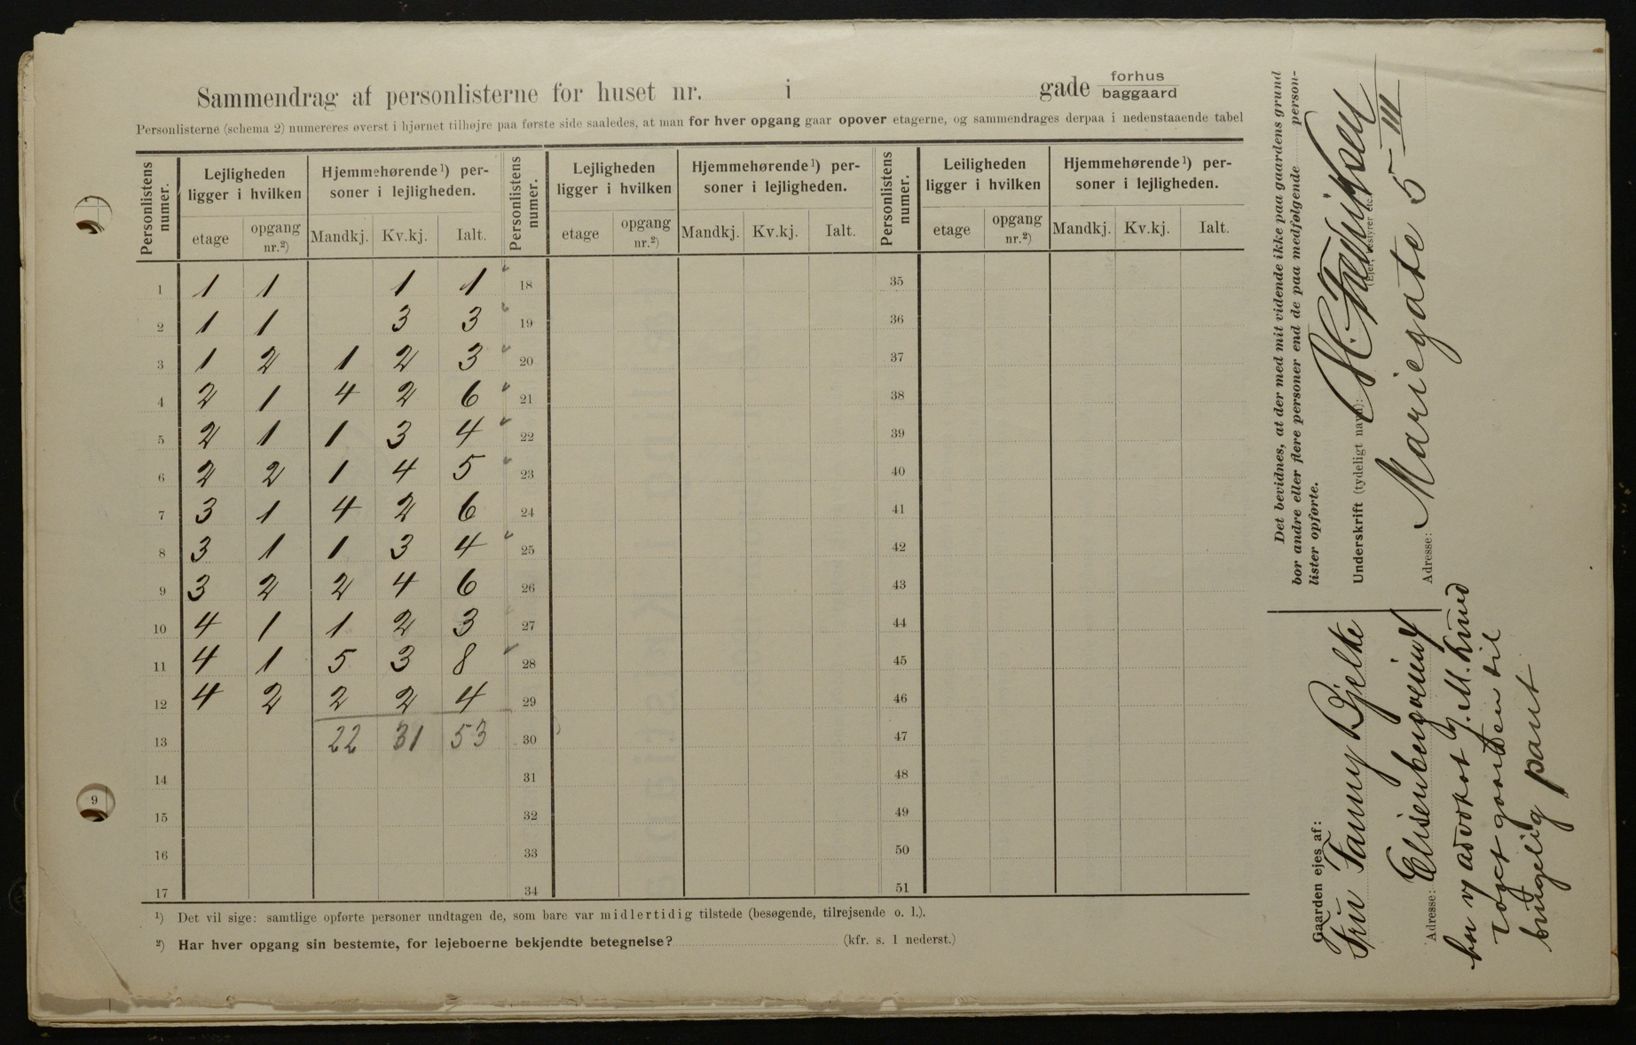 Sammendrag af personlisterne for huset nr. i gade forhus baggaard
Personlisterne (schema 2) numereres øverst i hjørnet tilhøjre paa første side saaledes, at man for hver opgang gaar opover etagerne, og sammendrages derpaa i nedenstaaende tabel
Personlistens numer. Lejligheden ligger i hvilken Hjemmehørende¹) personer i lejligheden. Personlistens numer. Lejligheden ligger i hvilken Hjemmehørende¹) personer i lejligheden. Personlistens numer. Leiligheden ligger i hvilken Hjemmehørende¹) personer i lejligheden.
etage opgang nr.²) Mandkj. Kv.kj. Ialt. etage opgang nr.²) Mandkj. Kv.kj. Ialt. etage opgang nr.²) Mandkj. Kv.kj. Ialt.
1 1 1 1 1 18 35
2 1 1 3 3 19 36
3 1 2 1 2 3 20 37
4 2 1 4 2 6 21 38
5 2 1 1 3 4 22 39
6 2 2 1 4 5 23 40
7 3 1 4 2 6 24 41
8 3 1 1 3 4 25 42
9 3 2 2 4 6 26 43
10 4 1 1 2 3 27 44
11 4 1 5 3 8 28 45
12 4 2 2 2 4 29 46
13 22 31 53 30 47
14 31 48
15 32 49
16 33 50
17 34 51
¹) Det vil sige: samtlige opførte personer undtagen de, som bare var midlertidig tilstede (besøgende, tilrejsende o. l.).
²) Har hver opgang sin bestemte, for lejeboerne bekjendte betegnelse? (kfr. s. 1 nederst.)
Det bevidnes, at der med mit vidende ikke paa gaardens grund
bor andre eller flere personer end de paa medfølgende person-
lister opførte.
Underskrift (tydeligt navn): H. Fredriksen
(Ejer, bestyrer etc.)
Adresse: Mariegate 5 III
Gaarden ejes af:
Fru Fanny Bjelke
Adresse: Elisenbergveien 4
advokat M. Lund
gaarden til
brugelig pant
9